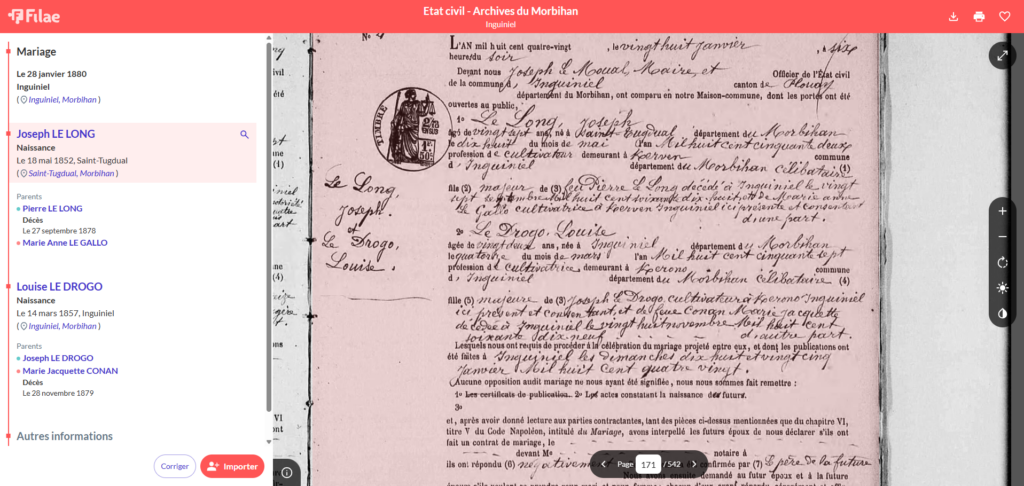 Filae
Etat civil - Archives du Morbihan
Inguiniel
Mariage
Le 28 janvier 1880
Inguiniel
( Inguiniel, Morbihan )
Joseph LE LONG
Naissance
Le 18 mai 1852, Saint-Tugdual
( Saint-Tugdual, Morbihan )
Parents
Pierre LE LONG
Décès
Le 27 septembre 1878
Marie Anne LE GALLO
Louise LE DROGO
Naissance
Le 14 mars 1857, Inguiniel
( Inguiniel, Morbihan )
Parents
Joseph LE DROGO
Marie Jacquette CONAN
Décès
Le 28 novembre 1879
Autres informations
Corriger
Importer
L'AN mil huit cent quatre-vingt , le vingt huit janvier , à six
heure/du soir
Devant nous Joseph Le Moual, Maire, et Officier de l'État civil
de la commune d' Inguiniel canton de Plouay
département du Morbihan, ont comparu en notre Maison-commune, dont les portes ont été
ouvertes au public,
TIMBRE
1° Le Long, Joseph
âgé de vingt sept ans, né à Saint-Tugdual département du Morbihan
le dix huit du mois de mai l'an Mil huit cent cinquante deux
profession de cultivateur demeurant à Kerven commune
d' Inguiniel département du Morbihan célibataire (4)
Le Long,
Joseph.
et
Le Drogo,
Louise.
fils (2) majeur de (3) feu Pierre Le Long décédé à Inguiniel le vingt
sept septembre Mil huit cent soixante dix-huit, et de Marie anne
Le Gallo cultivatrice à Kerven Inguiniel ici présente et consentant
d'une part.
2° Le Drogo, Louise
âgée de vingt deux ans, née à Inguiniel département du Morbihan
le quatorze du mois de mars l'an Mil huit cent cinquante sept
profession de cultivatrice demeurant à Kerono commune
d' Inguiniel département du Morbihan célibataire (4)
fille (5) majeure de (3) Joseph Le Drogo cultivateur à Kerono Inguiniel
ici présent et consentant, et de feue Conan Marie jacquette
décédée à Inguiniel le vingt huit novembre Mil huit cent
soixante dix neuf d'autre part.
Lesquels nous ont requis de procéder à la célébration du mariage projeté entre eux, et dont les publications ont
été faites à Inguiniel les dimanches dix huit et vingt cinq
janvier Mil huit cent quatre vingt.
Aucune opposition audit mariage ne nous ayant été signifiée, nous nous sommes fait remettre :
1° Les certificats de publication. 2° Les actes constatant la naissance des futurs.
3°
et, après avoir donné lecture aux parties contractantes, tant des pièces ci-dessus mentionnées que du chapitre VI,
titre V du Code Napoléon, intitulé du Mariage, avons interpellé les futurs époux de nous déclarer s'ils ont
fait un contrat de mariage, le
devant Me notaire à
ils ont répondu (6) négativement confirmée par (7) Le père de la future
Page 171 / 542